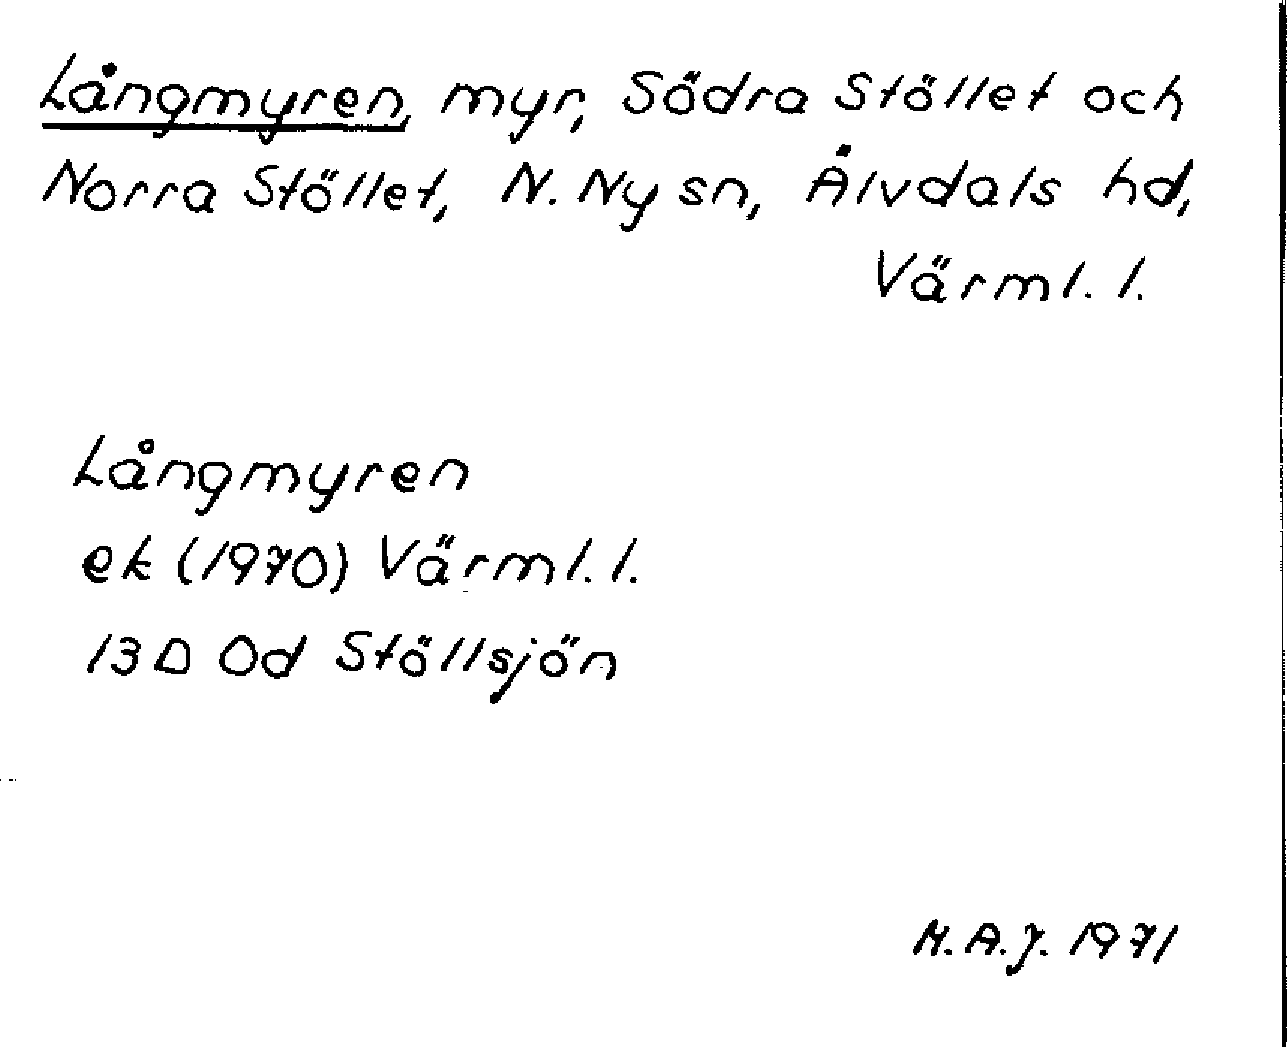 Långmyren, myr, Södra Stöllet och
Norra Stöllet, N. Ny sn, Älvdals hd,
Värml. l.
Långmyren
ek (1970) Värml. l.
13D 0d Stöllsjön
M.A.J. 1971